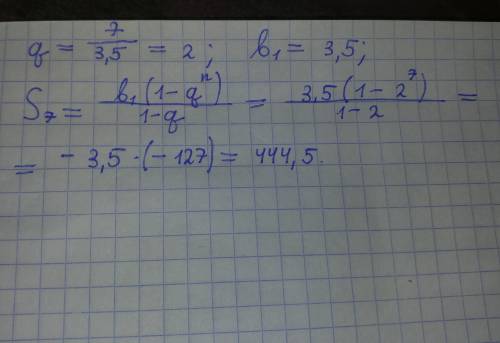 q = 7/3,5 = 2; b₁ = 3,5;
S₇ = b₁(1-qⁿ)/1-q = 3,5(1-2⁷)/1-2 =
= - 3,5·(-127) = 444,5.